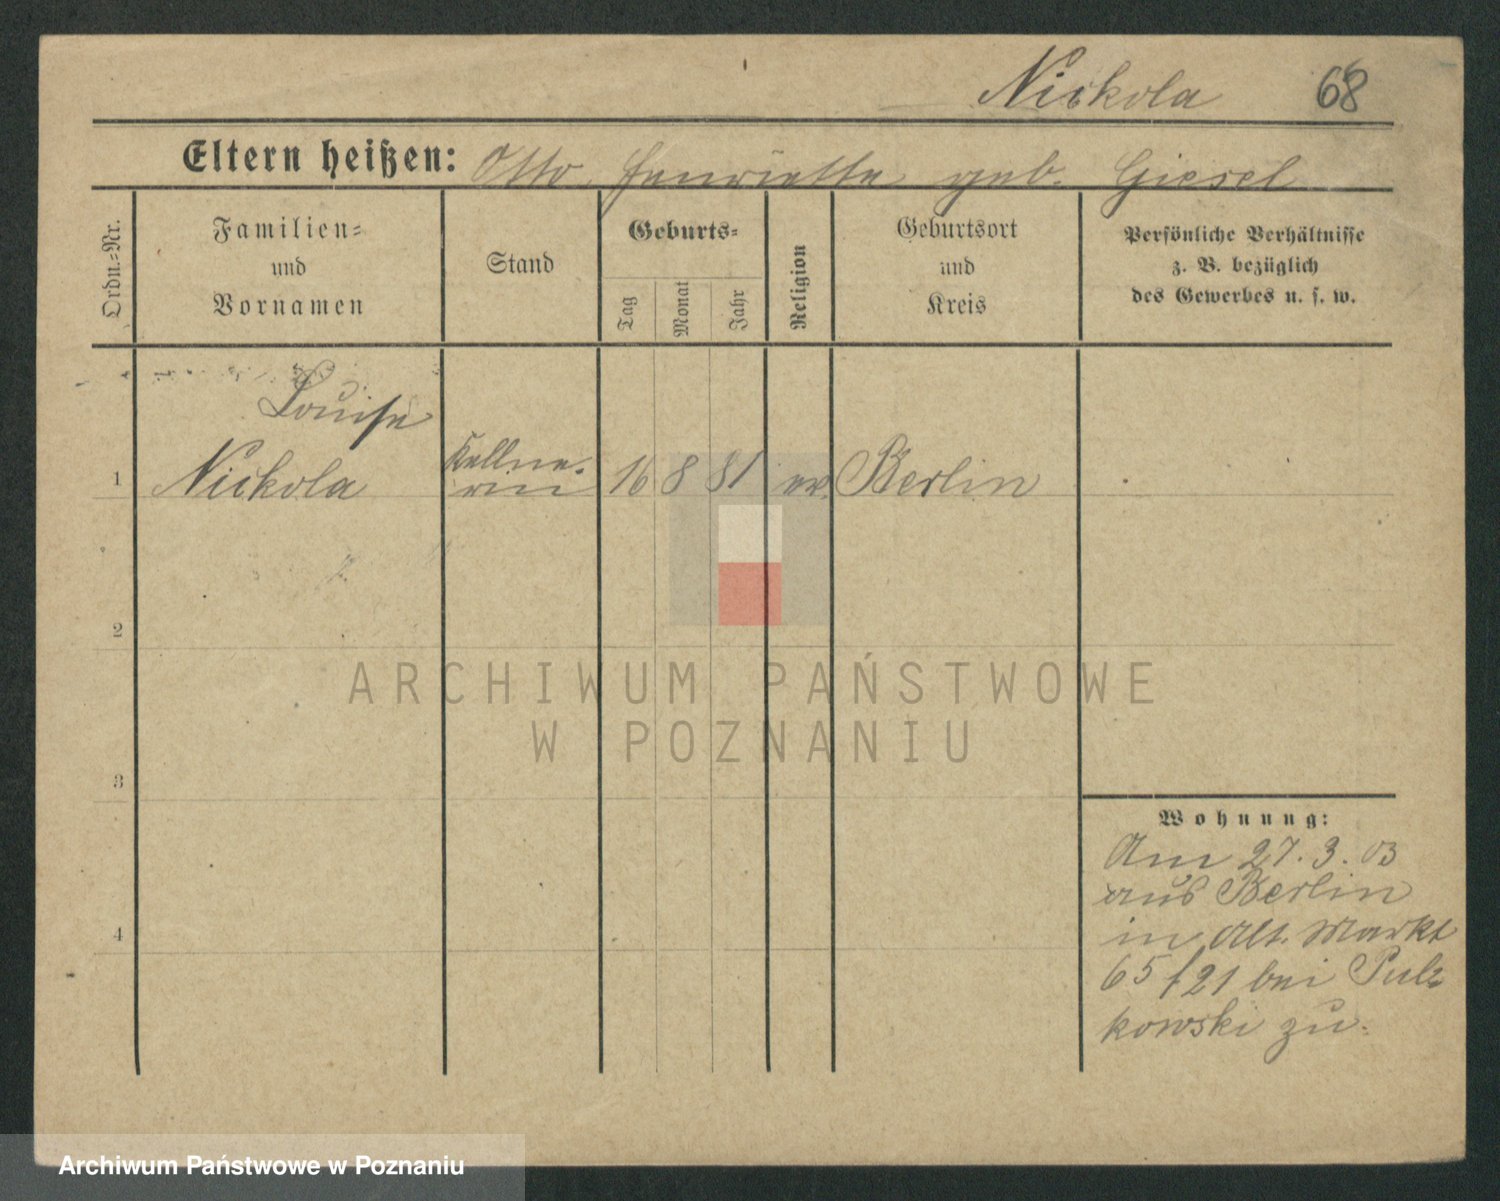 Nickola 68
Eltern heißen: Otto. Henriette geb. Giesel
Ordn.=Nr.
Familien=
und
Vornamen
Stand
Geburts=
Tag
Monat
Jahr
Religion
Geburtsort
und
Kreis
Persönliche Verhältnisse
z. B. bezüglich
des Gewerbes u. s. w.
Louise
1 Nickola Kellne- 16 8 81 ev. Berlin
rin
2
3
4
Wohnung:
Am 27. 3. 03
aus Berlin
in Alt. Markt
65/21 bei
kowski zu.
ARCHIWUM PAŃSTWOWE
W POZNANIU
Archiwum Państwowe w Poznaniu